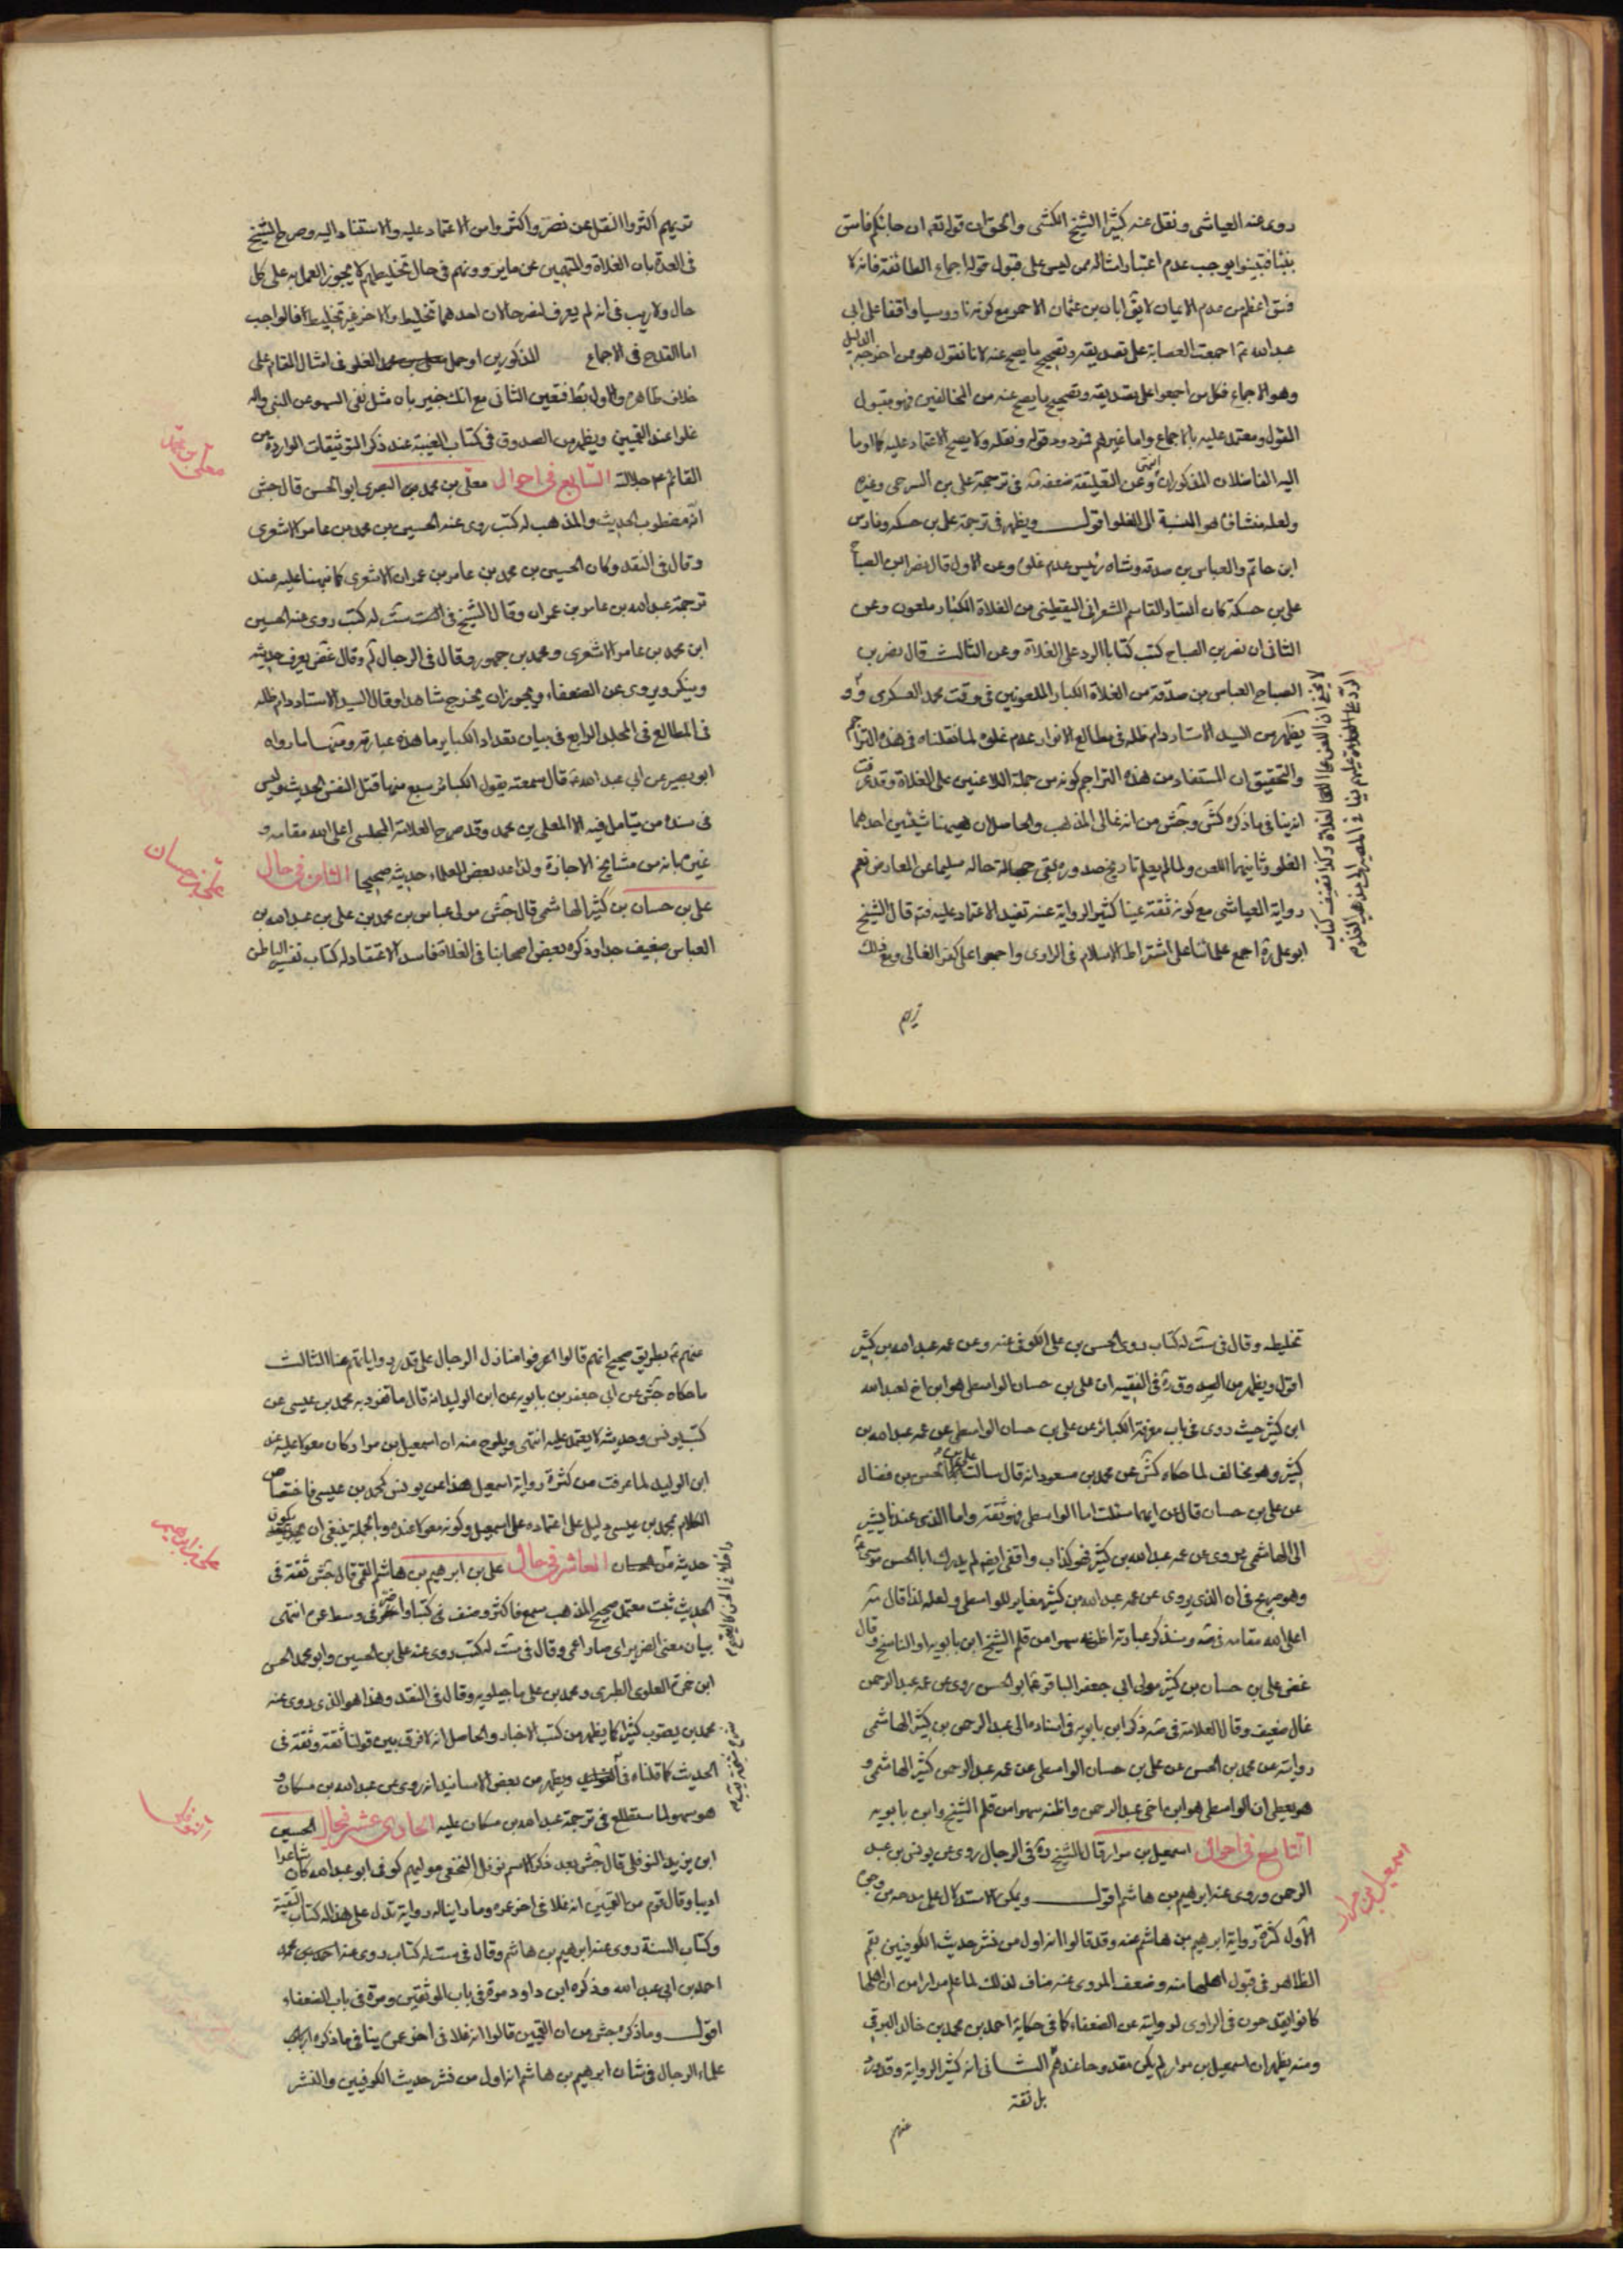 روى عنه العياشى ونقل عنه كثيرا الشيخ الكشى والحق ان قوله تعه ان جائكم فاسق
بنبأ فتبينوا يوجب عدم اعتبار امثاله ممن ليس على قبول قوله اجماع الطائفة فانه لا
فسق اعظم من عدم الايمان لا يق ابان بن عثمان الاحمر مع كونه ناووسيا واقفا على ابى
عبد الله ع اجمعت العصابة على تصديقه وتصحيح ما يصح عنه لانا نقول هو ممن اخرجه الدليل
وهو الاجماع فكل من اجمعوا على تصديقه وتصحيح ما يصح عنه من المخالفين فهو مقبول
القول ومعتمد عليه بالاجماع واما غيرهم فمردود قوله ونقله ولا يصح الاعتماد عليه كما اوما
اليه الفاضلان المذكوران انتهى وعن التعليقة ضعفه فى ترجمة على بن السرحى وغيره
ولعله منشاؤها هو النسبة الى الغلو اقول ويظهر فى ترجمة على بن حسكه وفارس
ابن حاتم والعباس بن صدقه وشاه رئيس عدم غلوه وعن الاول قال نصر بن الصباح
على بن حسكة كان استاد القاسم الشعرانى اليقطينى من الغلاة الكبار ملعون وعن
الثانى ان نصر بن الصباح كتب كتابا الرد على الغلاة وعن الثالث قال نصر بن
الصباح العباس بن صدقة من الغلاة الكبار الملعونين فى وقت محمد العسكرى و
يظهر من السيد الاستاد دام ظله فى مطالع الانوار عدم غلوه لما نقلناه فى هذه التراجم
والتحقيق ان المستفاد من هذه التراجم كونه من جملة اللاعنين على الغلاة وقد عرفت
انه ينافى ما ذكره كش وجش من انه غالى المذهب والحاصل ان هيهنا شيئين احدهما
الغلو وثانيهما اللعن ولما لم يعلم تاريخ صدوره بقى جهالة حاله سليما عن المعارض نعم
رواية العياشى مع كونه ثقة عينا كثير الرواية عنه تفيد الاعتماد عليه فته قال الشيخ
ابو على ره اجمع علمائنا على اشتراط الاسلام فى الراوى واجمعوا على كفر الغالى ومع ذلك
تريهم
تريهم اكثروا النقل عن نصر واكثروا من الاعتماد عليه والاستناد اليه وصرح الشيخ
فى العدة بان الغلاة والمتهمين عن ما يروونهم فى حال تخليطهم لا يجوز العمل به على كل
حال ولا ريب فى انه لم يعرف لنصر حالان احدهما تخليط والاخر غير تخليط فالواجب
اما القدح فى الاجماع المذكورين او حمل الغلو فى امثال المقام على
خلاف ظاهره والاول بط فتعين الثانى مع انك خبير بان مثل نفى السهو عن النبى واله
غلوا عند القميين ويظهر من الصدوق فى كتاب الغيبة عند ذكر التوثيقات الواردة من
القائم ع جلالته السابع فى احوال معلى بن محمد بن البصرى ابو الحسن قال جش
انه مضطرب الحديث والمذهب له كتب روى عنه الحسين بن محمد بن عامر الاشعرى
وقال فى النقد وكان الحسين بن محمد بن عامر بن عمران الاشعرى كما نبهنا عليه عند
ترجمة عبد الله بن عامر بن عمران وقال الشيخ فى الست ست له كتب روى عنه الحسين
ابن محمد بن عامر الاشعرى ومحمد بن جمهور وقال فى الرجال لم وقال غض يعرف حديثه
وينكر ويروى عن الضعفاء ويجوز ان يخرج شاهدا وقال السيد الاستاد دام ظله
فى المطالع فى المجلد الرابع فى بيان تعداد الكباير ما هذه عبارته ومنها ما رواه
ابو بصير عن ابى عبد الله ع قال سمعته يقول الكبائر سبع منها قتل النفس الحديث وليس
فى سنده من يتامل فيه الا المعلى بن محمد وقد صرح العلامة المجلسى اعلى الله مقامه و
غيره بانه من مشايخ الاجازة ولذا عد بعض العلماء حديثه صحيحا الثامن فى حال
على بن حسان بن كثير الهاشمى قال جش مولى عباس بن محمد بن على بن عبد الله بن
العباس ضعيف جدا وذكره بعض اصحابنا فى الغلاة فاسد الاعتقاد له كتاب تفسير الباطن
معلى بن محمد
على بن حسان
تخليطه وقال فى ست له كتاب روى الحسن بن على الكوفى عنه وعن عمه عبد الله بن كثير
اقول ويظهر من الصدوق ره فى الفقيه ان على بن حسان الواسطى هو ابن اخ لعبد الله
ابن كثير حيث روى فى باب معرفة الكبائر عن على بن حسان الواسطى عن عمه عبد الله بن
كثير وهو مخالف لما حكاه كش عن محمد بن مسعود انه قال سالت على بن الحسن بن فضال
عن على بن حسان قال عن ايهما سئلت اما الواسطى فهو ثقة واما الذى عندنا يشير
الى الهاشمى يروى عن عمه عبد الله بن كثير فهو كذاب واقفى ايضا لم يدرك ابا الحسن موسى ع
وهو صريح فى ان الذى يروى عن عمه عبد الله بن كثير مغاير للواسطى ولعله لذا قال مه
اعلى الله مقامه فى صه وسنذكر عبارته اظنه سهوا من قلم الشيخ ابن بابويه او الناسخ وقال
غض على بن حسان بن كثير مولى ابى جعفر الباقر ع ابو الحسن روى عن عمه عبد الرحمن
غال ضعيف وقال العلامة فى صه ذكر ابن بابويه فى اسناده الى عبد الرحمن بن كثير الهاشمى
روايته عن محمد بن الحسن عن على بن حسان الواسطى عن عمه عبد الرحمن كثير الهاشمى و
هو يعطى ان الواسطى هو ابن اخى عبد الرحمن واظنه سهوا من قلم الشيخ وابن بابويه
التاسع فى احوال اسمعيل بن مرار قال الشيخ ره فى الرجال روى عن يونس بن عبد
الرحمن وروى عنه ابرهيم بن هاشم اقول ويمكن الاستدلال على مدحه من وجوه
الاول كثرة رواية ابرهيم بن هاشم عنه وقد قالوا انه اول من نشر حديث الكوفيين بقم
الظاهر فى قبول اهلها منه وضعف المروى عنه مناف لذلك لما علم مرارا من ان اهلها
كانوا يقدحون فى الراوى لروايته عن الضعفاء كما فى حكاية احمد بن محمد بن خالد البرقى
ومنه يظهر ان اسمعيل بن مرار لم يكن مقدوحا عندهم الثانى انه كثير الرواية وقد ورد
بل ثقة
عنهم
اسمعيل بن مرار
عنهم ع بطريق صحيح انهم قالوا اعرفوا منازل الرجال على قدر رواياتهم عنا الثالث
ما حكاه جش عن ابى جعفر بن بابويه عن ابن الوليد انه قال ما تفرد به محمد بن عيسى عن
كتب يونس وحديثه لا يعتمد عليه انتهى ويلوح منه ان اسمعيل بن مرار كان معولا عليه عند
ابن الوليد لما عرفت من كثرة رواية اسمعيل هذا عن يونس كمحمد بن عيسى فاختصاص
الكلام بمحمد بن عيسى دليل على اعتماده على اسمعيل وكونه معولا عنده وبالجملة ينبغى ان يكون
حديثه من الحسان العاشر فى حال على بن ابرهيم بن هاشم القمى قال جش ثقة فى
الحديث ثبت معتمد صحيح المذهب سمع فاكثر وصنف فى كتبا واضر فى وسط عمره انتهى
بيان معنى الضرير اى صار اعمى وقال فى ست له كتب روى عنه على بن الحسين وابو محمد الحسن
ابن حمزة العلوى الطبرى ومحمد بن على ماجيلويه وقال فى النقد وهذا هو الذى روى عنه
محمد بن يعقوب كثيرا كما يظهر من كتب الاخبار والحاصل انه لا فرق بين قولنا ثقة وثقة فى
الحديث كما قلناه فى الفوايد ويظهر من بعض الاسانيد انه روى عن عبد الله بن مسكان و
هو سهو لما ستطلع فى ترجمة عبد الله بن مسكان عليه الحادى عشر فى حال الحسين
ابن يزيد النوفلى قال جش بعد ذكر الاسم نوفل النخعى مولاهم كوفى ابو عبد الله كان شاعرا
اديبا وقال قوم من القميين انه غلا فى اخر عمره وما راينا له رواية تدل على هذا له كتاب التقية
وكتاب السنة روى عنه ابرهيم بن هاشم وقال فى ست له كتاب روى عنه
احمد بن ابى عبد الله وذكره ابن داود مرة فى باب الموثقين ومرة فى باب الضعفاء
اقول وما ذكره جش من ان القميين قالوا انه غلا فى اخر عمره ينافى ما ذكره
علماء الرجال فى شان ابرهيم بن هاشم انه اول من نشر حديث الكوفيين والنشر
على بن ابرهيم